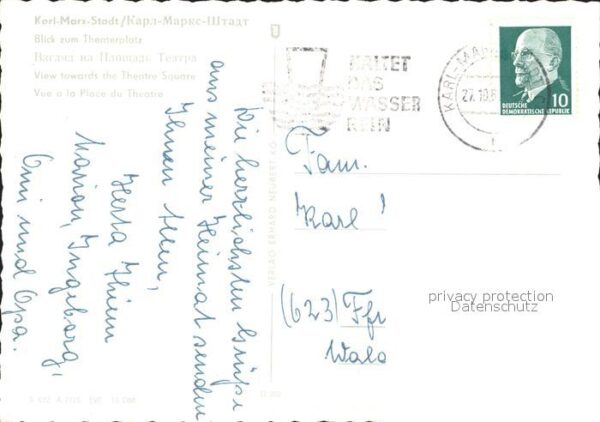 Karl-Marx-Stadt/Карл-Маркс-Штадт
Blick zum Theaterplatz
Взгляд на Площадь Театра
View towards the Theatre Square
Vue a la Place du Theatre
HALTET
DAS
WASSER
REIN
KARL-MARX-
27.10.6
DEUTSCHE
DEMOKRATISCHE REPUBLIK
10
Die herzlichsten Grüße
aus meiner Heimat senden
Ihnen Allen,
Herta Thiem
Marion, Ingeborg,
Omi und Opa.
VERLAG ERHARD NEUBERT KG
Fam.
"Karl"
(623) Ffr
Wald
privacy protection
Datenschutz